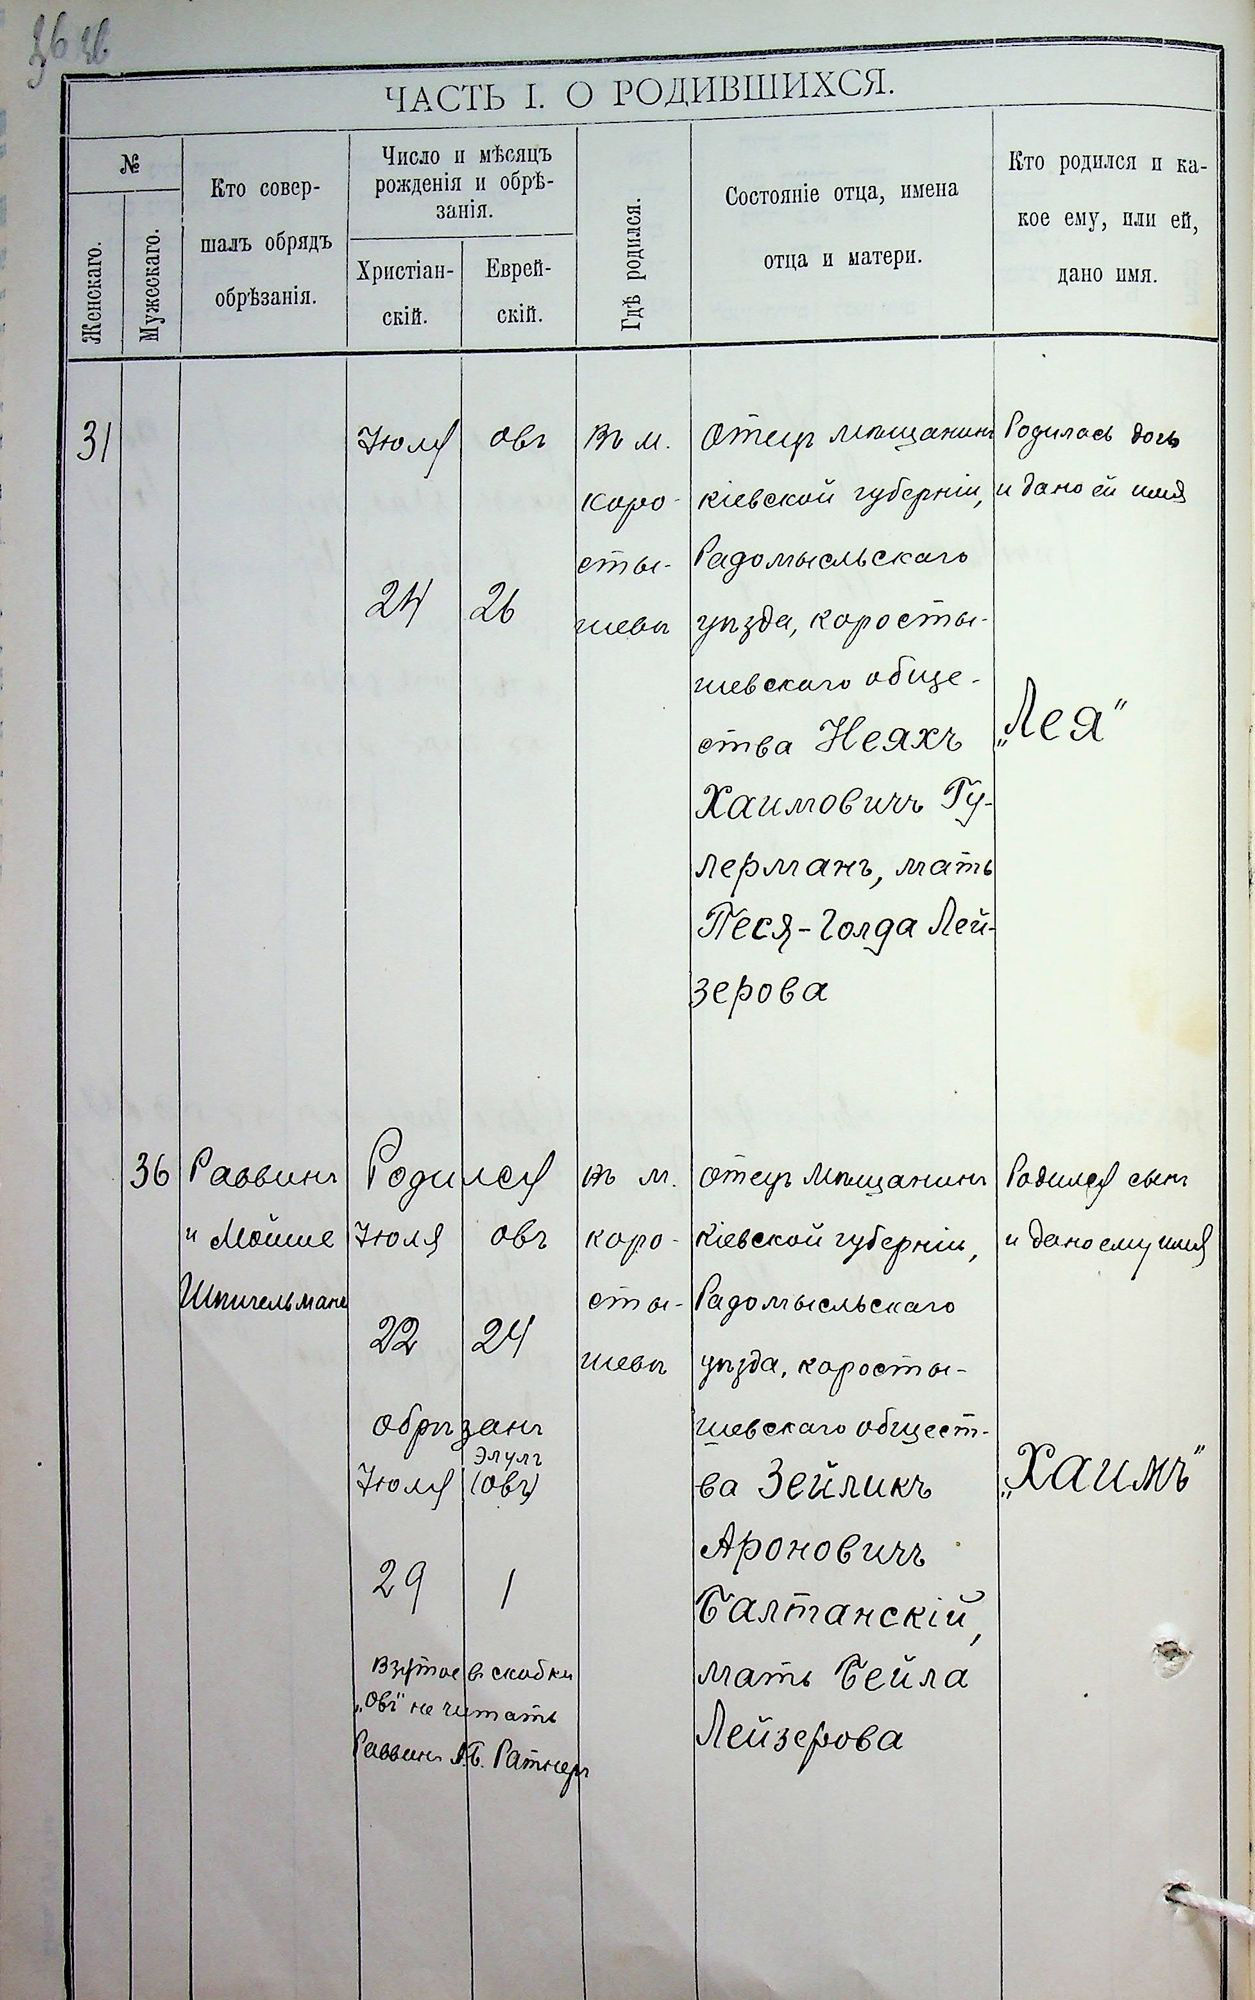 36 36
ЧАСТЬ I. О РОДИВШИХСЯ.
№
Женскаго.
Мужескаго.
Кто совер-
шалъ обрядъ
обрѣзанія.
Число и мѣсяцъ
рожденія и обрѣ-
занія.
Христіан-
скій.
Еврей-
скій.
Гдѣ родился.
Состояніе отца, имена
отца и матери.
Кто родился и ка-
кое ему, или ей,
дано имя.
31
Іюля
24
овъ
26
Въ м.
Коро-
сты-
шевъ
Отецъ мѣщанинъ
Кіевской губерніи,
Радомысльскаго
уѣзда, Коросты-
шевскаго обще-
ства Неяхъ
Хаимовичъ Гу-
лерманъ, мать
Песя-Голда Лей-
зерова
Родилась дочь
и дано ей имя
„Лея"
36
Раввинъ
и Мойше
Шпигельманъ
Родился
Іюля овъ
22 24
обрѣзанъ
Элулъ
Іюля (овъ)
29 1
Взятое в скобки
„Овъ" не читать
Раввинъ А.Б. Ратнеръ
Въ м.
Коро-
сты-
шевъ
Отецъ мѣщанинъ
Кіевской губерніи,
Радомысльскаго
уѣзда, Коросты-
шевскаго общест-
ва Зейликъ
Ароновичъ
Балтанскій,
мать Бейла
Лейзерова
Родился сынъ
и дано ему имя
„Хаимъ"